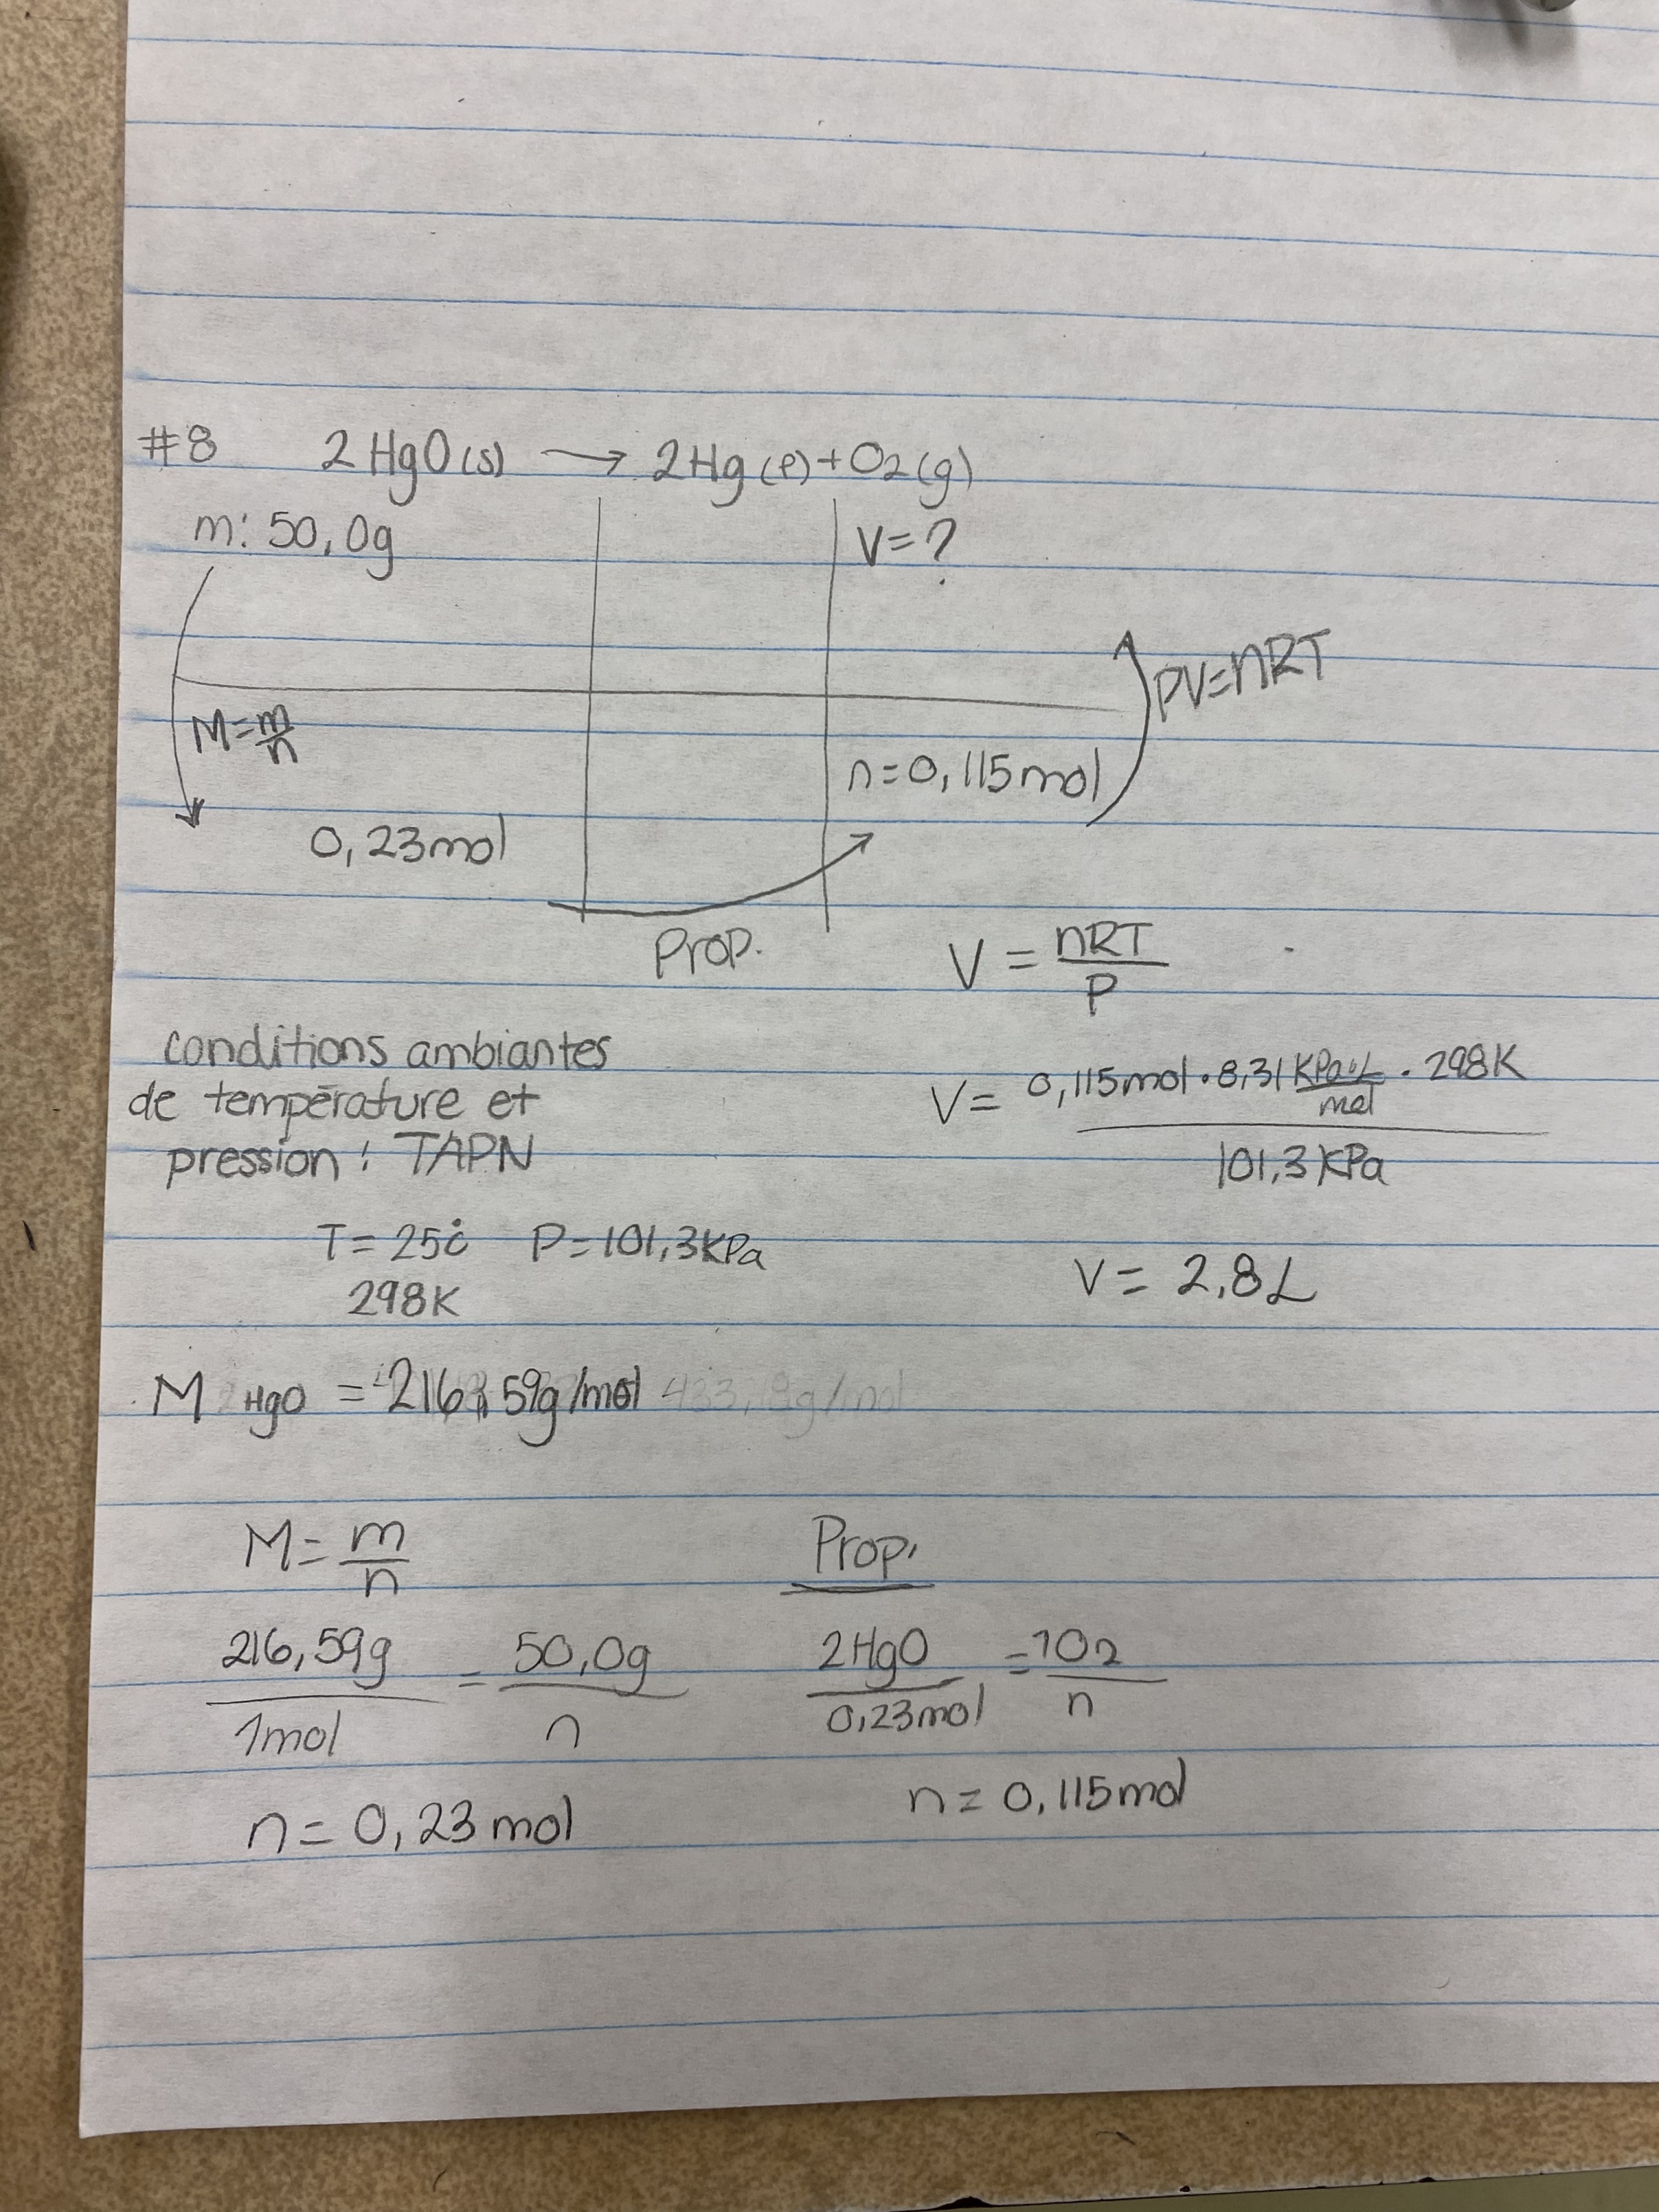 #8 2 HgO(s) → 2Hg(l) + O2(g)
m: 50,0g
V=?
M=m/n
PV=nRT
n=0,115mol
0,23mol
Prop.
V = nRT/P
conditions ambiantes
de température et
pression : TAPN
V = 0,115mol • 8,31 KPa•L/mol • 298K / 101,3 KPa
T = 25°C P=101,3KPa
298K
V = 2,8L
M HgO = 216,59g/mol 433,18g/mol
M = m/n
Prop.
216,59g/1mol = 50,0g/n
2HgO/0,23mol = 1O2/n
n = 0,23 mol
n = 0,115mol